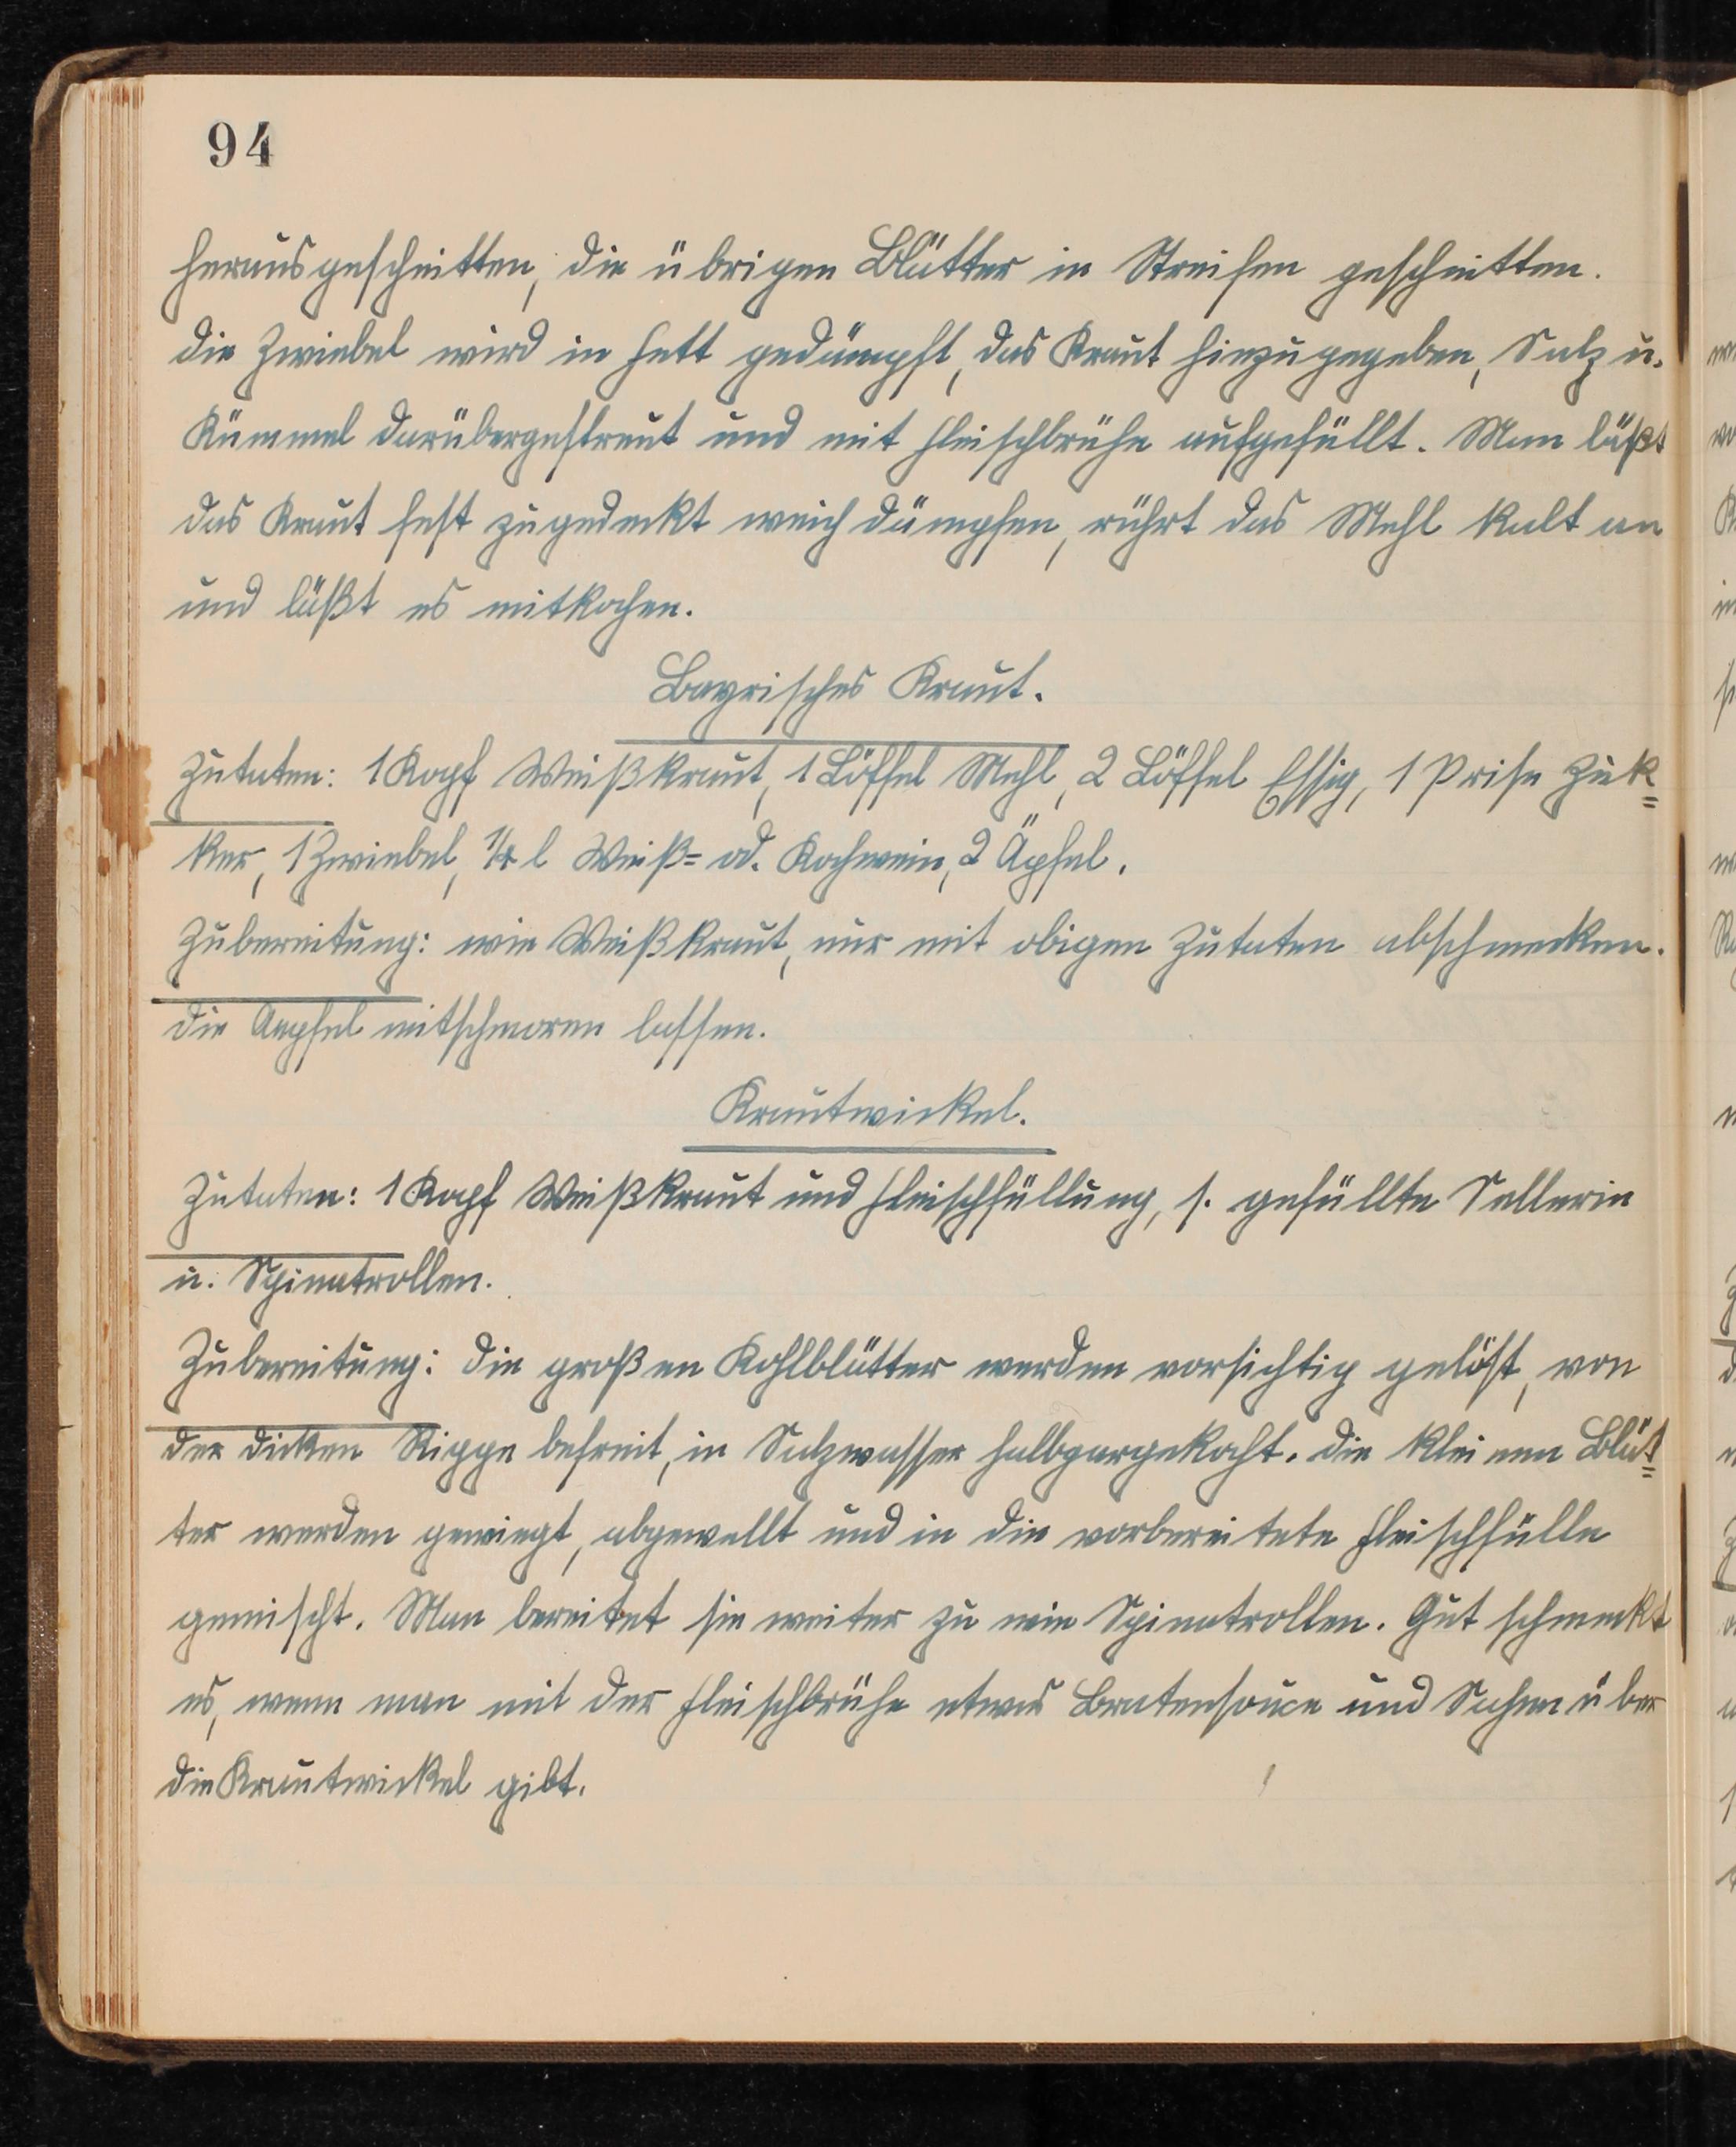 94
herausgeschnitten, die übrigen Blätter in Streifen geschnitten.
Die Zwiebel wird in Fett gedämpft, das Kraut hinzugegeben, Salz u.
Kümmel darübergestreut und mit Fleischbrühe aufgefüllt. Man läßt
das Kraut fest zugedeckt weich dämpfen, rührt das Mehl kalt an
und läßt es mitkochen.
Bayrisches Kraut.
Zutaten: 1 Kopf Weißkraut, 1 Löffel Mehl, 2 Löffel Essig, 1 Prise Zuk=
ker, 1 Zwiebel, 1/4 l Weiß= od. Kochwein, 2 Äpfel.
Zubereitung: wie Weißkraut, nur mit obigen Zutaten abschmecken.
Die Aepfel mitschmoren lassen.
Krautwickel.
Zutaten: 1 Kopf Weißkraut und Fleischfüllung, s. gefüllte Sellerie
u. Spinatrollen.
Zubereitung: Die großen Kohlblätter werden vorsichtig gelöst, von
der dicken Rippe befreit, in Salzwasser halbgargekocht. Die kleinen Blät=
ter werden gewiegt, abgewellt und in die vorbereitete Fleischfülle
gemischt. Man bereitet sie weiter zu wie Spinatrollen. Gut schmeckt
es, wenn man mit der Fleischbrühe etwas Bratensouce und Sahne über
die Krautwickel gibt.